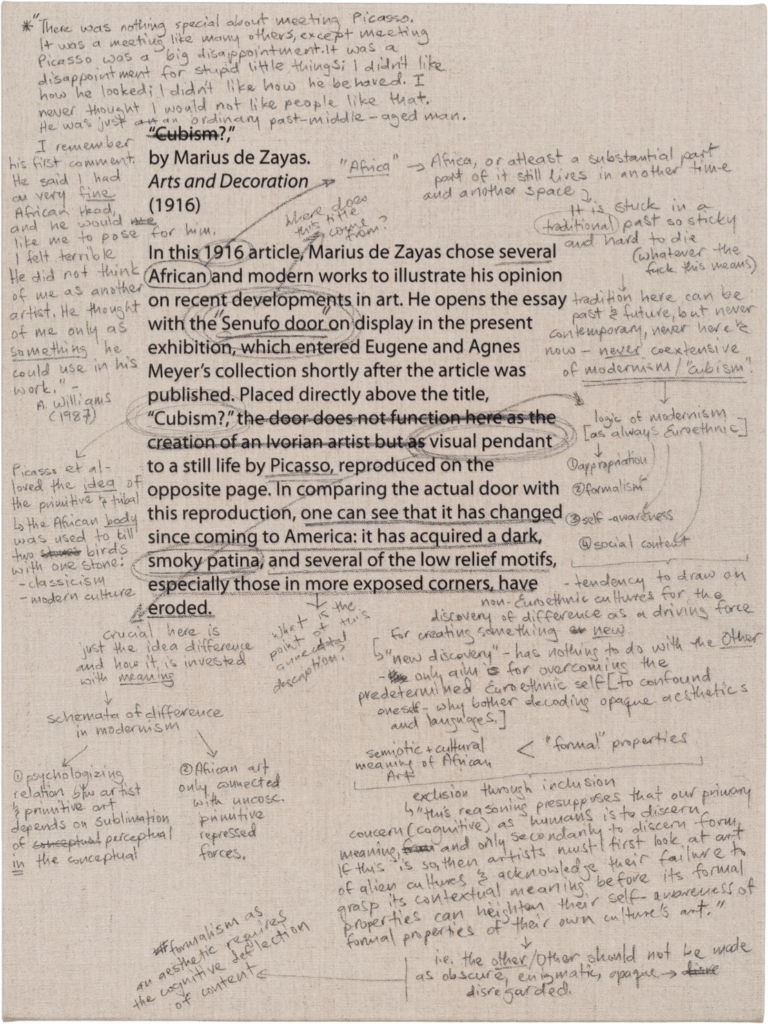 *"There was nothing special about meeting Picasso.
It was a meeting like many others, except meeting
Picasso was a big disappointment. It was a
disappointment for stupid little things; I didn't like
how he looked; I didn't like how he behaved. I
never thought I would not like people like that.
He was just an ordinary past-middle-aged man.
I remember
his first comment.
He said I had
a very fine
African head,
and he would
like me to pose for him.
I felt terrible
He did not think
of me as another
artist. He thought
of me only as
something he
could use in his
work." -
A. Williams
(1987)
"Cubism?,"
by Marius de Zayas.
Arts and Decoration
(1916)
In this 1916 article, Marius de Zayas chose several
African and modern works to illustrate his opinion
on recent developments in art. He opens the essay
with the "Senufo door" on display in the present
exhibition, which entered Eugene and Agnes
Meyer's collection shortly after the article was
published. Placed directly above the title,
"Cubism?," the door does not function here as the
creation of an Ivorian artist but as visual pendant
to a still life by Picasso, reproduced on the
opposite page. In comparing the actual door with
this reproduction, one can see that it has changed
since coming to America: it has acquired a dark,
smoky patina, and several of the low relief motifs,
especially those in more exposed corners, have
eroded.
where does
this title
come from?
"Africa" → Africa, or atleast a substantial part
part of it still lives in another time
and another space
It is stuck in a
(traditional) past so sticky
and hard to die
(whatever the
fuck this means)
tradition here can be
past & future, but never
contemporary, never here &
now - never coextensive
of modernism/"cubism"
logic of modernism
[as always Euroethnic]
① appropriation
② formalism
③ self-awareness
④ social content
- tendency to draw on
non-Euroethnic cultures for the
discovery of difference as a driving force
for creating something new
↳ "new discovery" - has nothing to do with the Other
- only aim is for overcoming the
predetermined Euroethnic self [to confound
oneself - why bother decoding opaque aesthetics
and languages.]
semiotic + cultural
meaning of African
Art
< "formal" properties
exclusion through inclusion
↳ "this reasoning presupposes that our primary
concern (cognitive) as humans is to discern
meaning, and only secondarily to discern form,
If this is so, then artists must first look at art
of alien cultures & acknowledge their failure to
grasp its contextual meaning before its formal
properties can heighten their self-awareness of
formal properties of their own culture's art."
i.e. the other/Other should not be made
as obscure, enigmatic, opaque →
disregarded.
Picasso et al-
loved the idea of
the primitive & tribal
↳ the African body
was used to kill
two birds
with one stone:
- classicism
- modern culture
crucial here is
just the idea difference
and how it is invested
with meaning
what is the
point of this
anecdotal
description?
schemata of difference
in modernism
① psychologizing
relation b/w artist
& primitive art
depends on sublimation
of conceptual perceptual
in the conceptual
② African art
only connected
with uncosc.
primitive
repressed
forces.
formalism as
an aesthetic requires
the cognitive deflection
of content